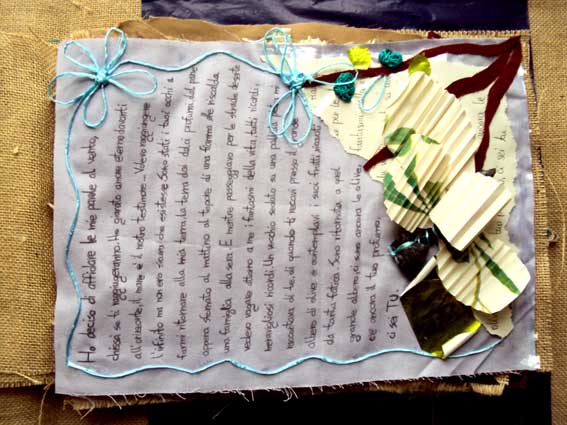 Ho deciso di affidare le mie parole al vento,
chissà se ti raggiungeranno. Ho guardato amore eterno davanti
all'orizzonte, il mare è il nostro testimone... Volevo raggiungere
l'infinito ma non ero sicuro che esistesse. Sono stati i tuoi occhi a
farmi ritornare alla mia terra, la terra dai dolci profumi del pane
appena sfornato al mattino, al tepore di una fiamma che riscalda
una famiglia alla sera. E mentre passeggiavo per le strade deserte
vedevo vagare attorno a me i fantasmi della vita, tutti ricordi,
meravigliosi ricordi. Un vecchio seduto su una panchina mi
raccontava di te, di quando ti recavi presso il grande
albero di ulivo e contemplavi i suoi frutti, ricordi
da tanta fatica. Sono ritornata a quel
grande albero, ci sono ancora le olive,
c'è ancora il tuo profumo
ci sei TU